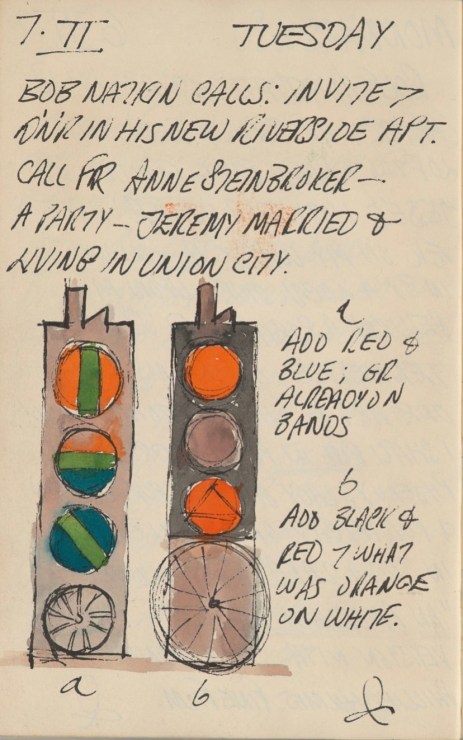 7·II TUESDAY
BOB NATKIN CALLS: INVITE 7
DNR IN HIS NEW RIVERSIDE APT.
CALL FR ANNE STEINBROKER—
A PARTY— JEREMY MARRIED &
LIVING IN UNION CITY.
a
ADD RED &
BLUE; GR
ALREADY ON
BANDS
b
ADD BLACK &
RED 7 WHAT
WAS ORANGE
ON WHITE.
a b